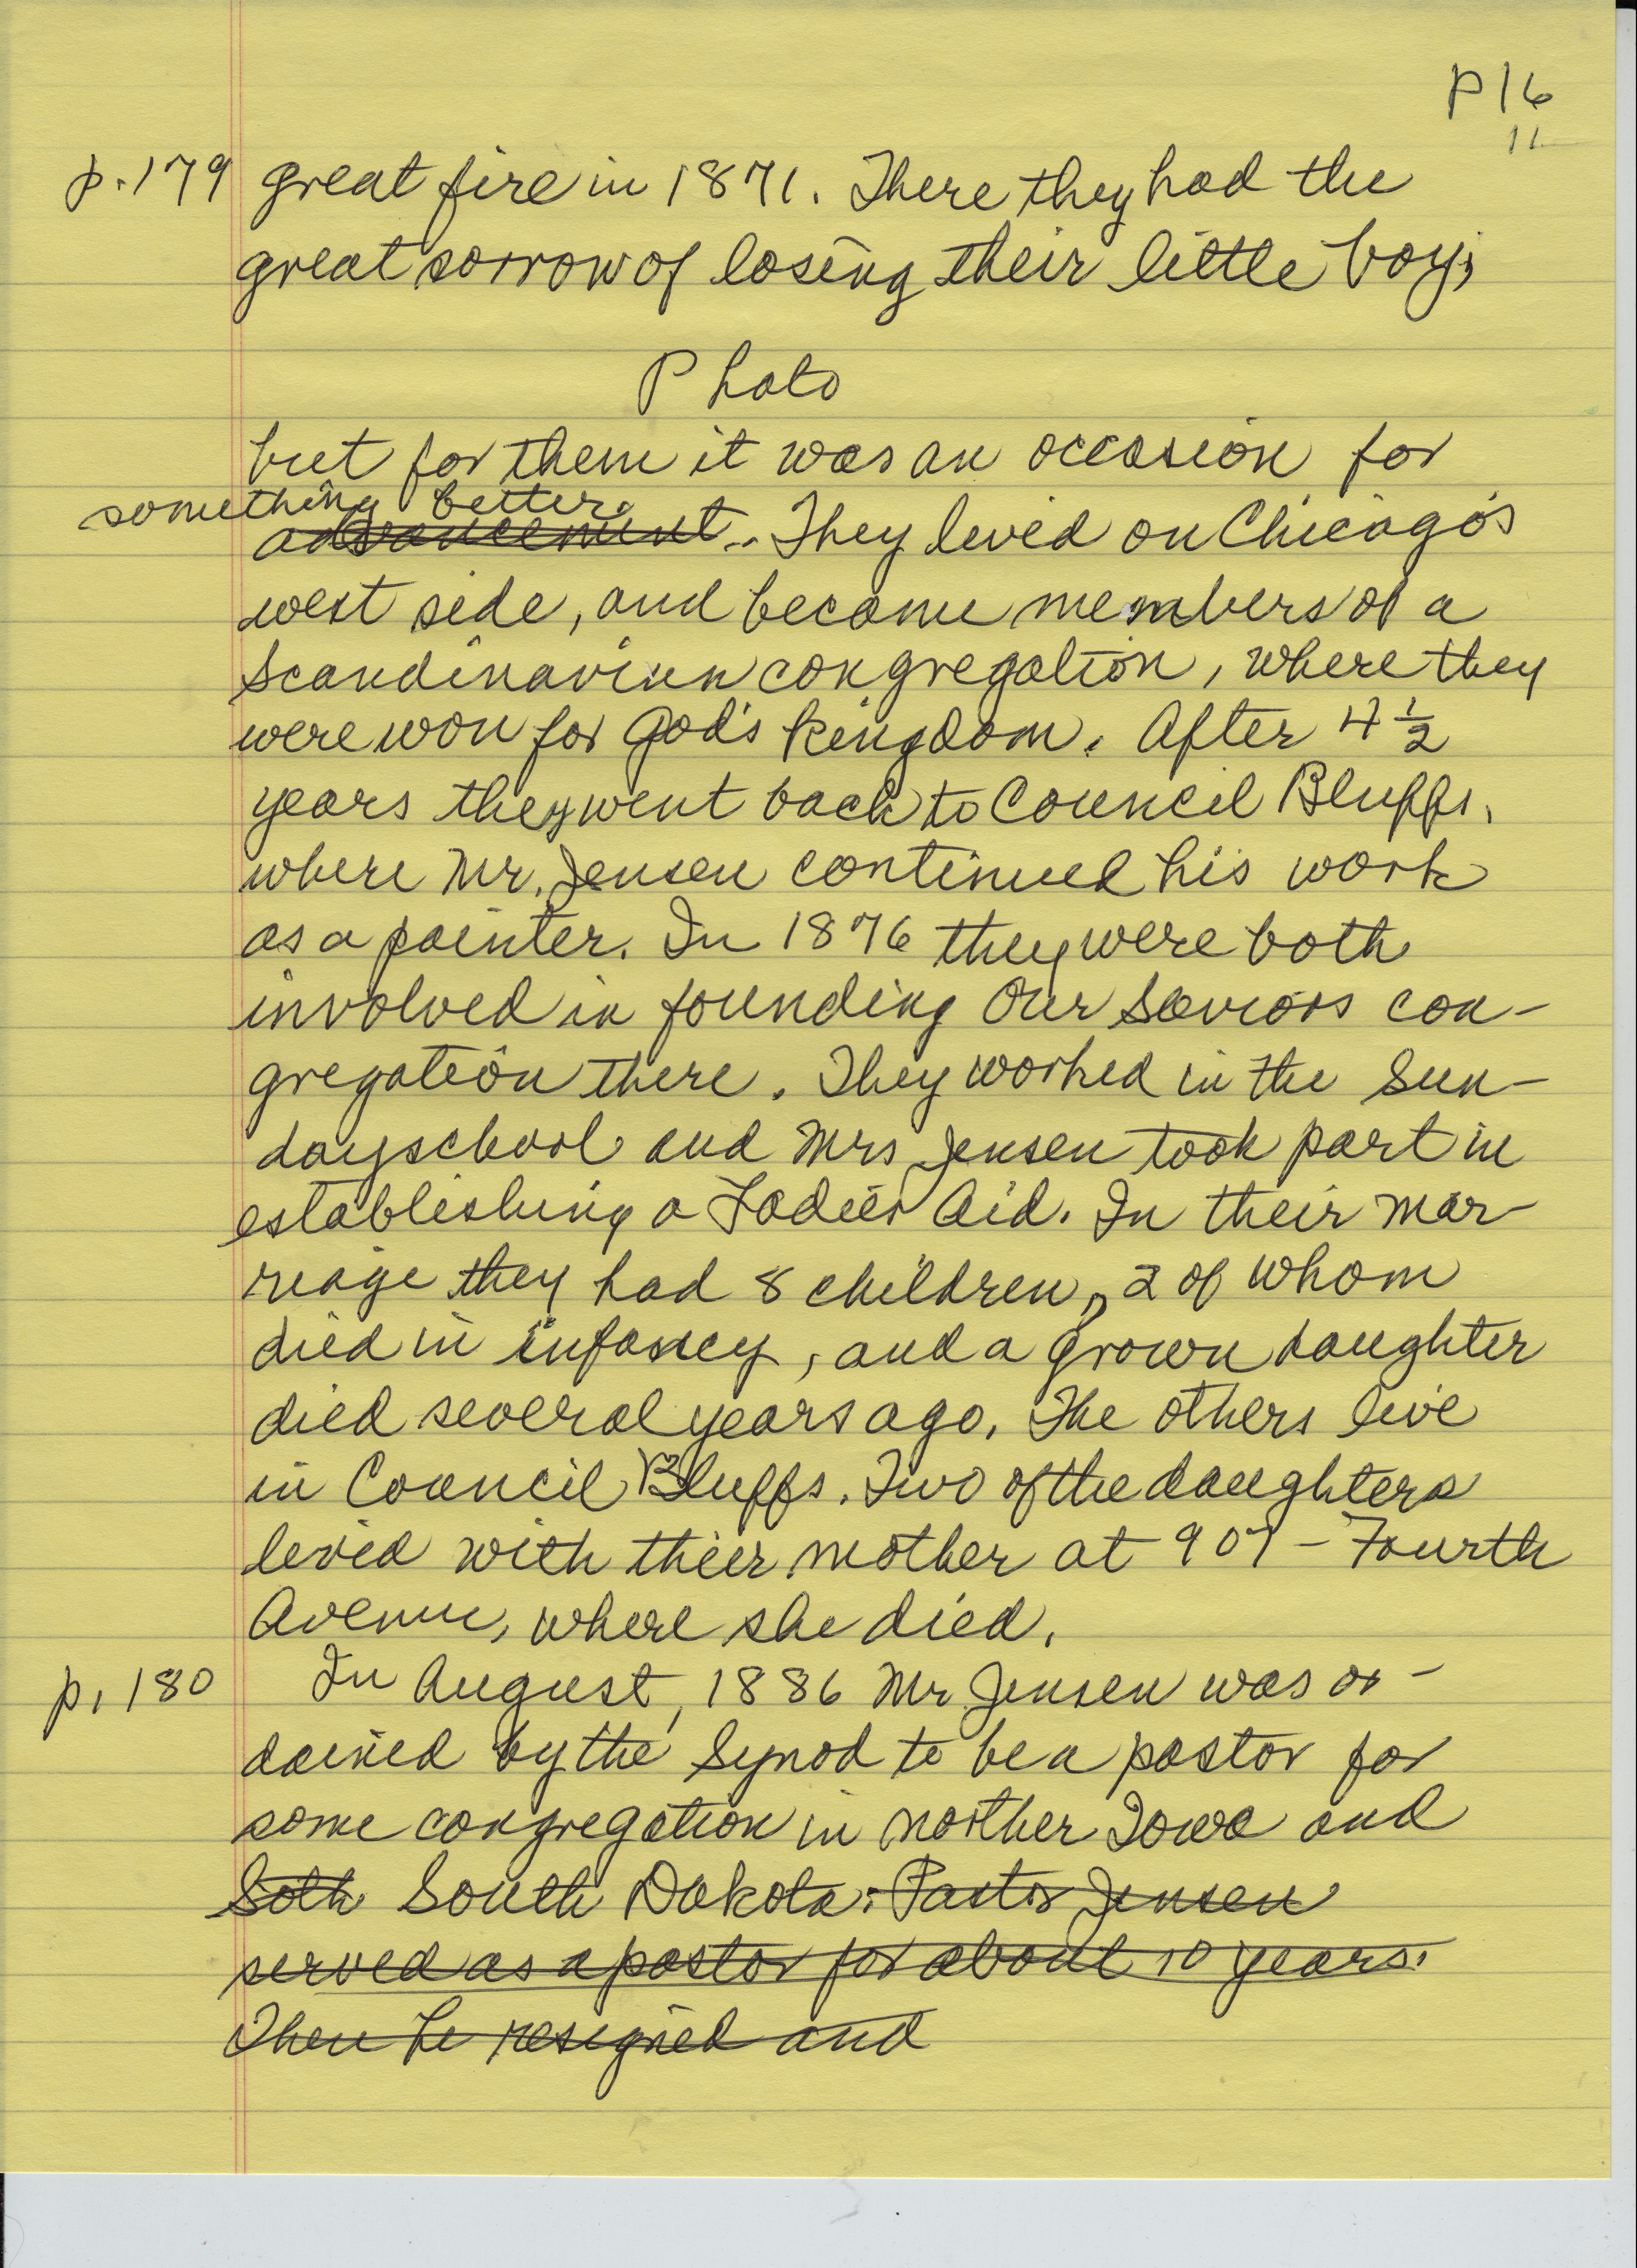 P16
11
p. 179 great fire in 1871. There they had the
great sorrow of losing their little boy,
Photo
but for them it was an occasion for
something better.
advancement.. They lived on Chicago's
west side, and became members of a
Scandinavian congregation, where they
were won for God's kingdom. After 4 1/2
years they went back to Council Bluffs,
where Mr. Jensen continued his work
as a painter. In 1876 they were both
involved in founding Our Saviors con-
gregation there. They worked in the Sun-
dayschool and Mrs Jensen took part in
establishing a Ladies Aid. In their mar-
reage they had 8 children, 2 of whom
died in infancy, and a grown daughter
died several years ago. The others live
in Council Bluffs. Two of the daughters
lived with thier mother at 907 - Fourth
Avenue, where she died.
p. 180 In August, 1886 Mr Jensen was or-
dained by the Synod to be a pastor for
some congregation in norther Iowa and
Soth South Dakota. Pastor Jensen
served as a pastor for about 10 years.
Then he resigned and